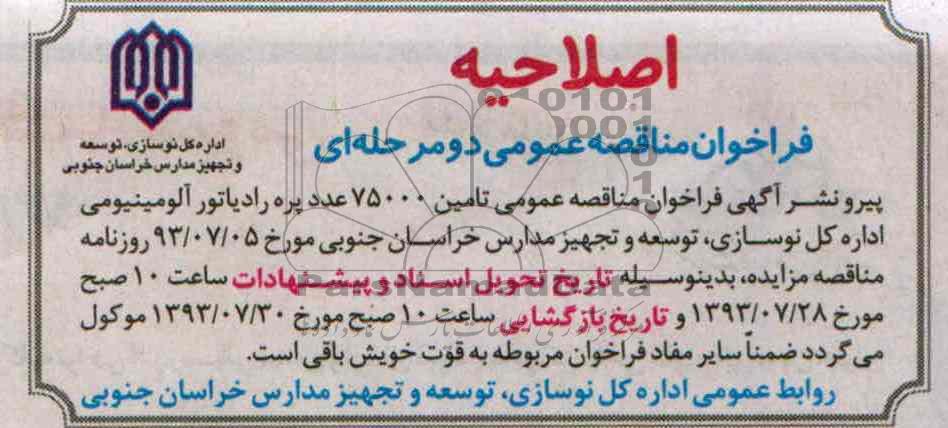 اصلاحیه
فراخوان مناقصه عمومی دو مرحله‌ای
اداره کل نوسازی، توسعه
و تجهیز مدارس خراسان جنوبی
پیرو نشر آگهی فراخوان مناقصه عمومی تامین ۷۵۰۰۰ عدد پره رادیاتور آلومینیومی
اداره کل نوسازی، توسعه و تجهیز مدارس خراسان جنوبی مورخ ۹۳/۰۷/۰۵ روزنامه
مناقصه مزایده، بدینوسیله تاریخ تحویل اسناد و پیشنهادات ساعت ۱۰ صبح
مورخ ۱۳۹۳/۰۷/۲۸ و تاریخ بازگشایی ساعت ۱۰ صبح مورخ ۱۳۹۳/۰۷/۳۰ موکول
می گردد ضمناً سایر مفاد فراخوان مربوطه به قوّت خویش باقی است.
روابط عمومی اداره کل نوسازی، توسعه و تجهیز مدارس خراسان جنوبی
ParsNamadData